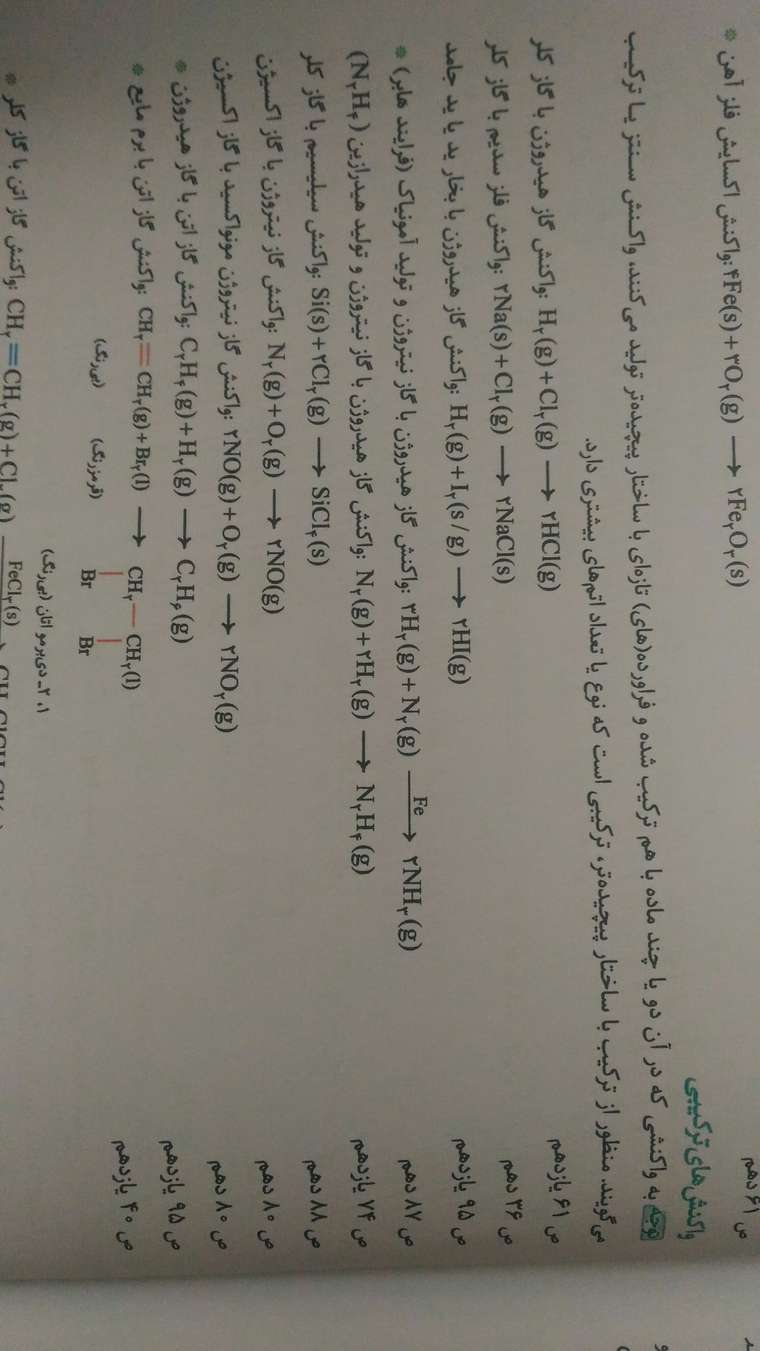 * واکنش اکسایش فلز آهن: ۴Fe(s)+۳O۲(g) ⟶ ۲Fe۲O۳(s) ص ۶۱ دهم
واکنش‌های ترکیبی
توجه به واکنشی که در آن دو یا چند ماده با هم ترکیب شده و فراورده(های) تازه‌ای با ساختار پیچیده‌تر تولید می‌کنند، واکنش سنتز یا ترکیب
می‌گویند. منظور از ترکیب با ساختار پیچیده‌تر، ترکیبی است که نوع یا تعداد اتم‌های بیشتری دارد.
واکنش گاز هیدروژن با گاز کلر: H۲(g)+Cl۲(g) ⟶ ۲HCl(g) ص ۶۱ یازدهم
واکنش فلز سدیم با گاز کلر: ۲Na(s)+Cl۲(g) ⟶ ۲NaCl(s) ص ۳۶ دهم
واکنش گاز هیدروژن با بخار ید یا ید جامد: H۲(g)+I۲(s/g) ⟶ ۲HI(g) ص ۹۵ یازدهم
* واکنش گاز هیدروژن با گاز نیتروژن و تولید آمونیاک (فرایند هابر): ۳H۲(g)+N۲(g) ⟶Fe ۲NH۳(g) ص ۸۷ دهم
واکنش گاز هیدروژن با گاز نیتروژن و تولید هیدرازین (N۲H۴): N۲(g)+۲H۲(g) ⟶ N۲H۴(g) ص ۷۴ یازدهم
واکنش سیلیسیم با گاز کلر: Si(s)+۲Cl۲(g) ⟶ SiCl۴(s) ص ۸۸ دهم
واکنش گاز نیتروژن با گاز اکسیژن: N۲(g)+O۲(g) ⟶ ۲NO(g) ص ۸۰ دهم
واکنش گاز نیتروژن مونواکسید با گاز اکسیژن: ۲NO(g)+O۲(g) ⟶ ۲NO۲(g) ص ۸۰ دهم
* واکنش گاز اتن با گاز هیدروژن: C۲H۴(g)+H۲(g) ⟶ C۲H۶(g) ص ۹۵ یازدهم
* واکنش گاز اتن با برم مایع: CH۲=CH۲(g)+Br۲(l) ⟶ CH۲—CH۲(l) ص ۴۰ یازدهم
(بی‌رنگ) (قرمزرنگ) Br Br
۱، ۲ـ دی‌برمو اتان (بی‌رنگ)
* واکنش گاز اتن با گاز کلر: CH۲=CH۲(g)+Cl۲(g) FeCl۳(s)